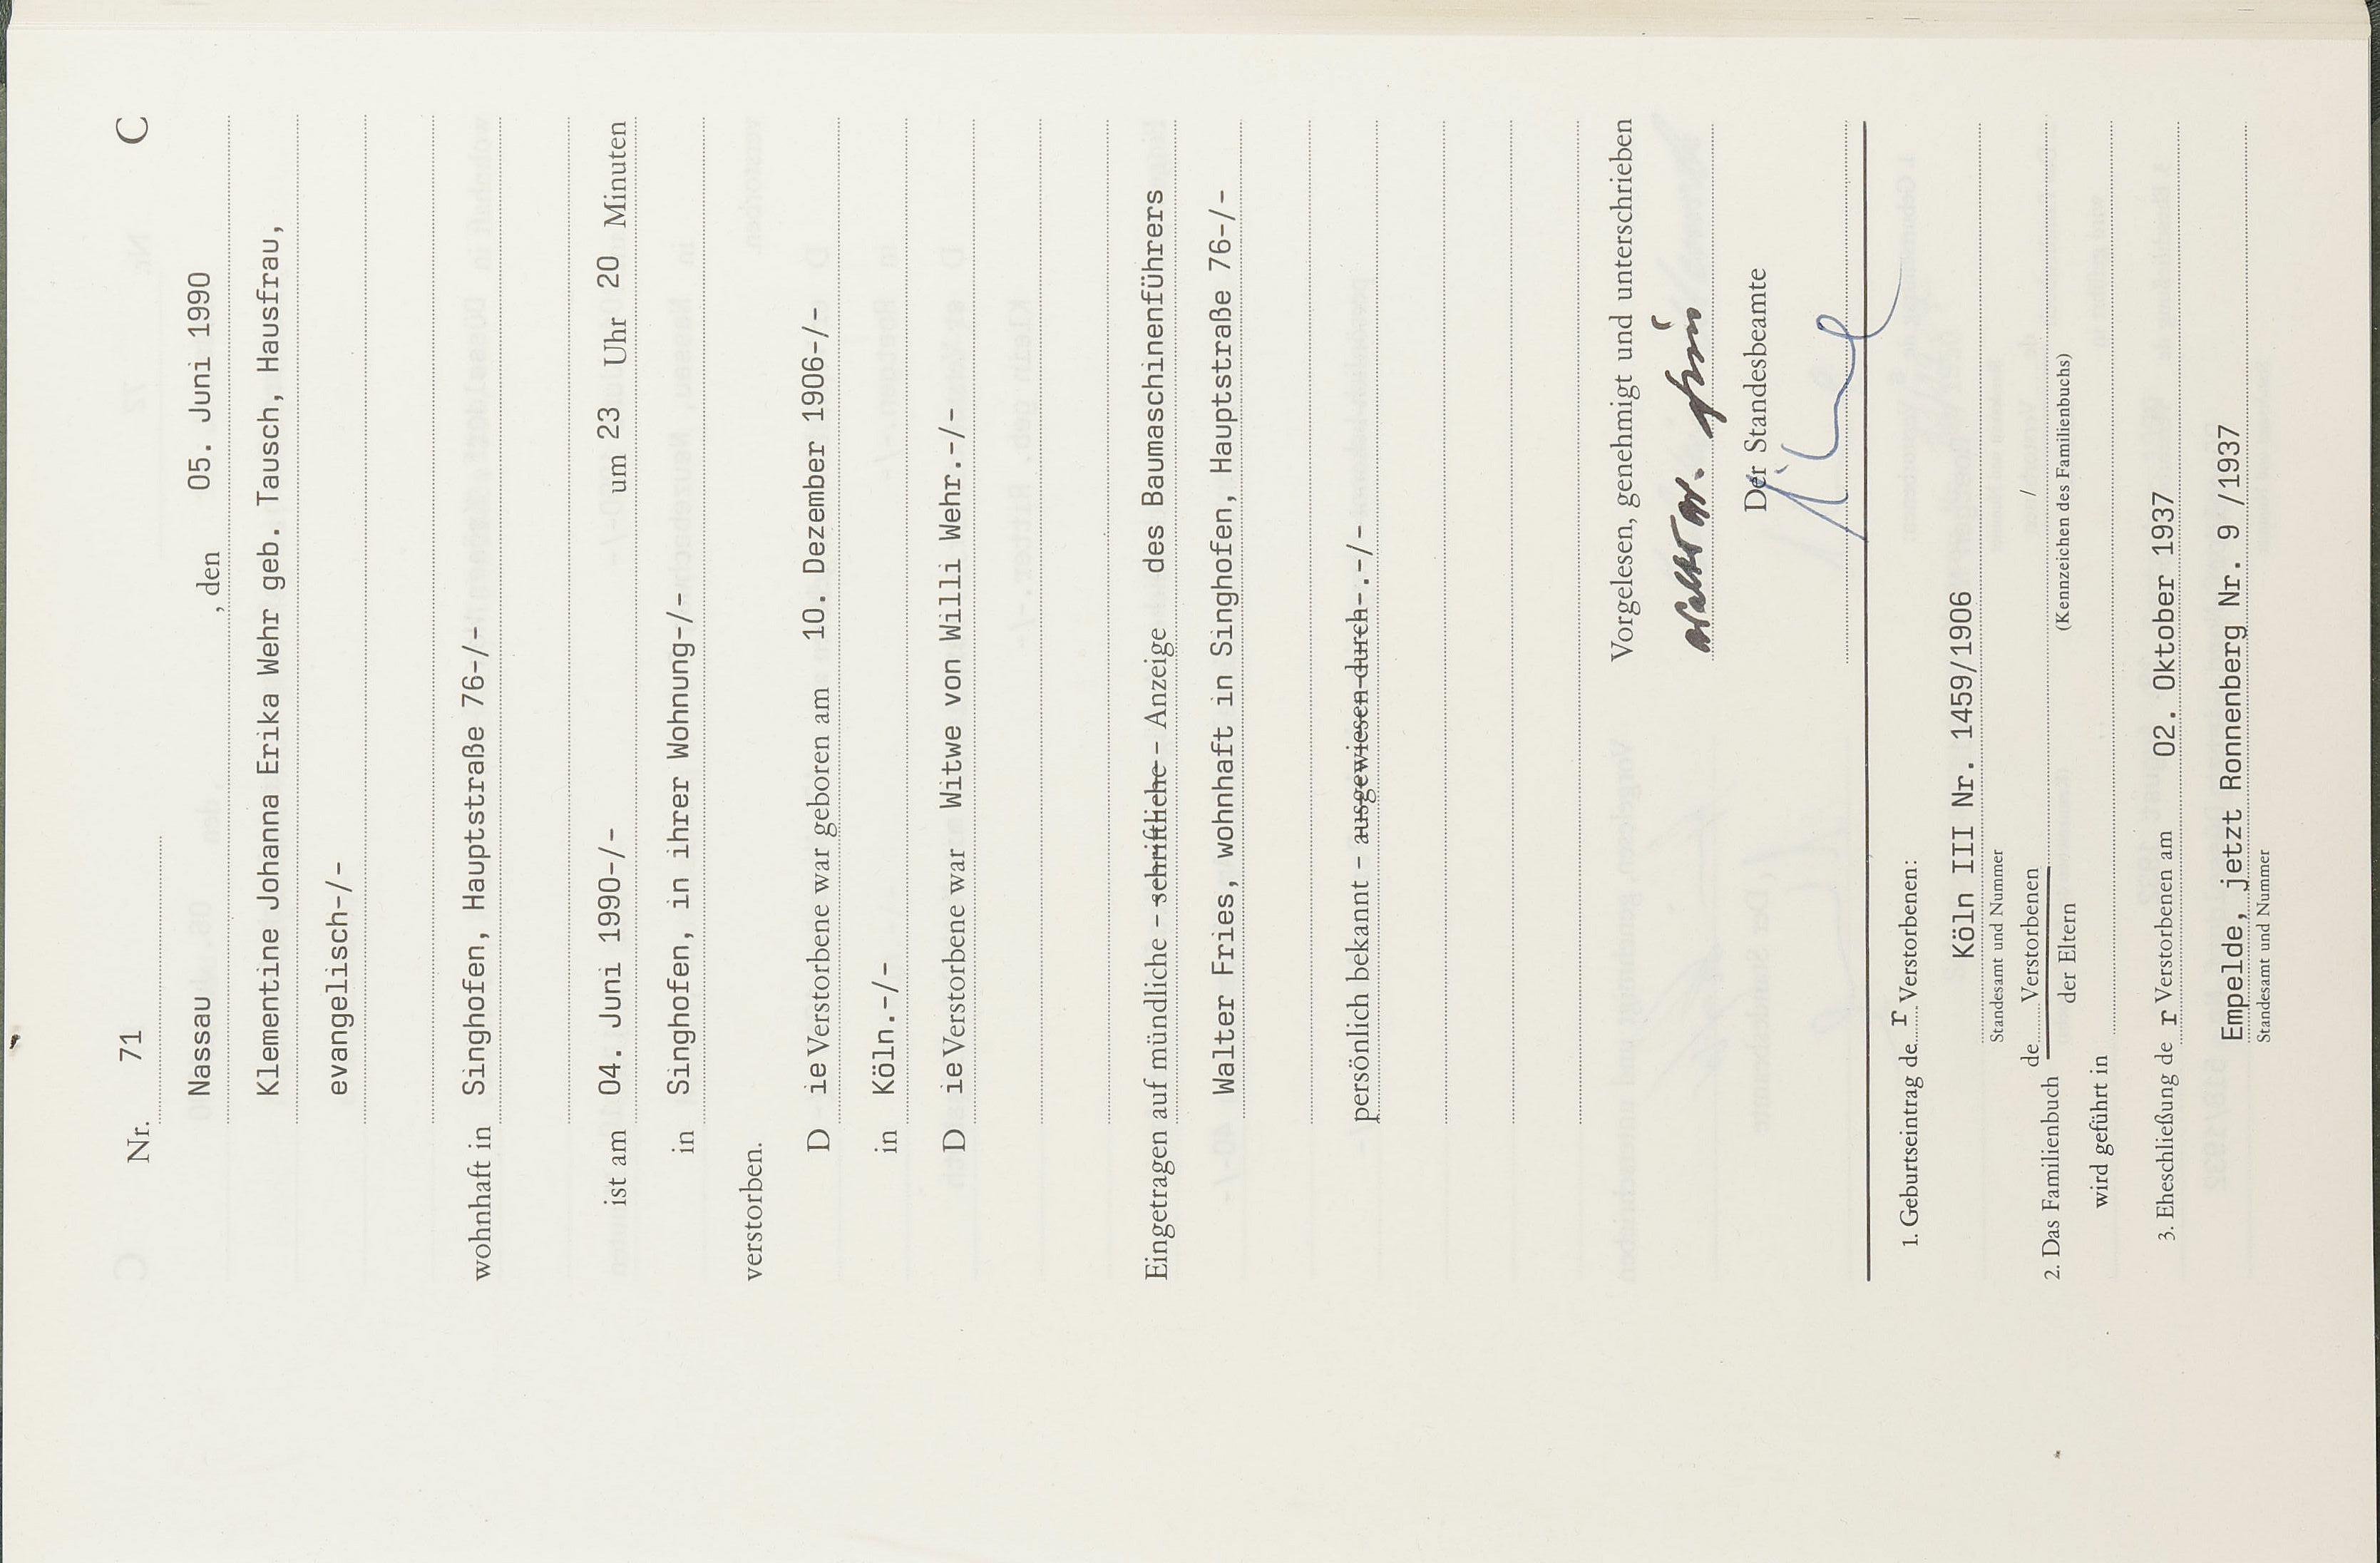 Nr. 71 C
Nassau , den 05. Juni 1990
Klementine Johanna Erika Wehr geb. Tausch, Hausfrau,
evangelisch-/-
wohnhaft in Singhofen, Hauptstraße 76-/-
ist am 04. Juni 1990-/- um 23 Uhr 20 Minuten
in Singhofen, in ihrer Wohnung-/-
verstorben.
D ie Verstorbene war geboren am 10. Dezember 1906-/-
in Köln.-/-
D ie Verstorbene war Witwe von Willi Wehr.-/-
Eingetragen auf mündliche – schriftliche – Anzeige des Baumaschinenführers
Walter Fries, wohnhaft in Singhofen, Hauptstraße 76-/-
persönlich bekannt – ausgewiesen durch-.-/-
Vorgelesen, genehmigt und unterschrieben
Der Standesbeamte
1. Geburtseintrag de r Verstorbenen:
Köln III Nr. 1459/1906
Standesamt und Nummer
2. Das Familienbuch de Verstorbenen /
der Eltern (Kennzeichen des Familienbuchs)
wird geführt in
3. Eheschließung de r Verstorbenen am 02. Oktober 1937
Empelde, jetzt Ronnenberg Nr. 9 /1937
Standesamt und Nummer